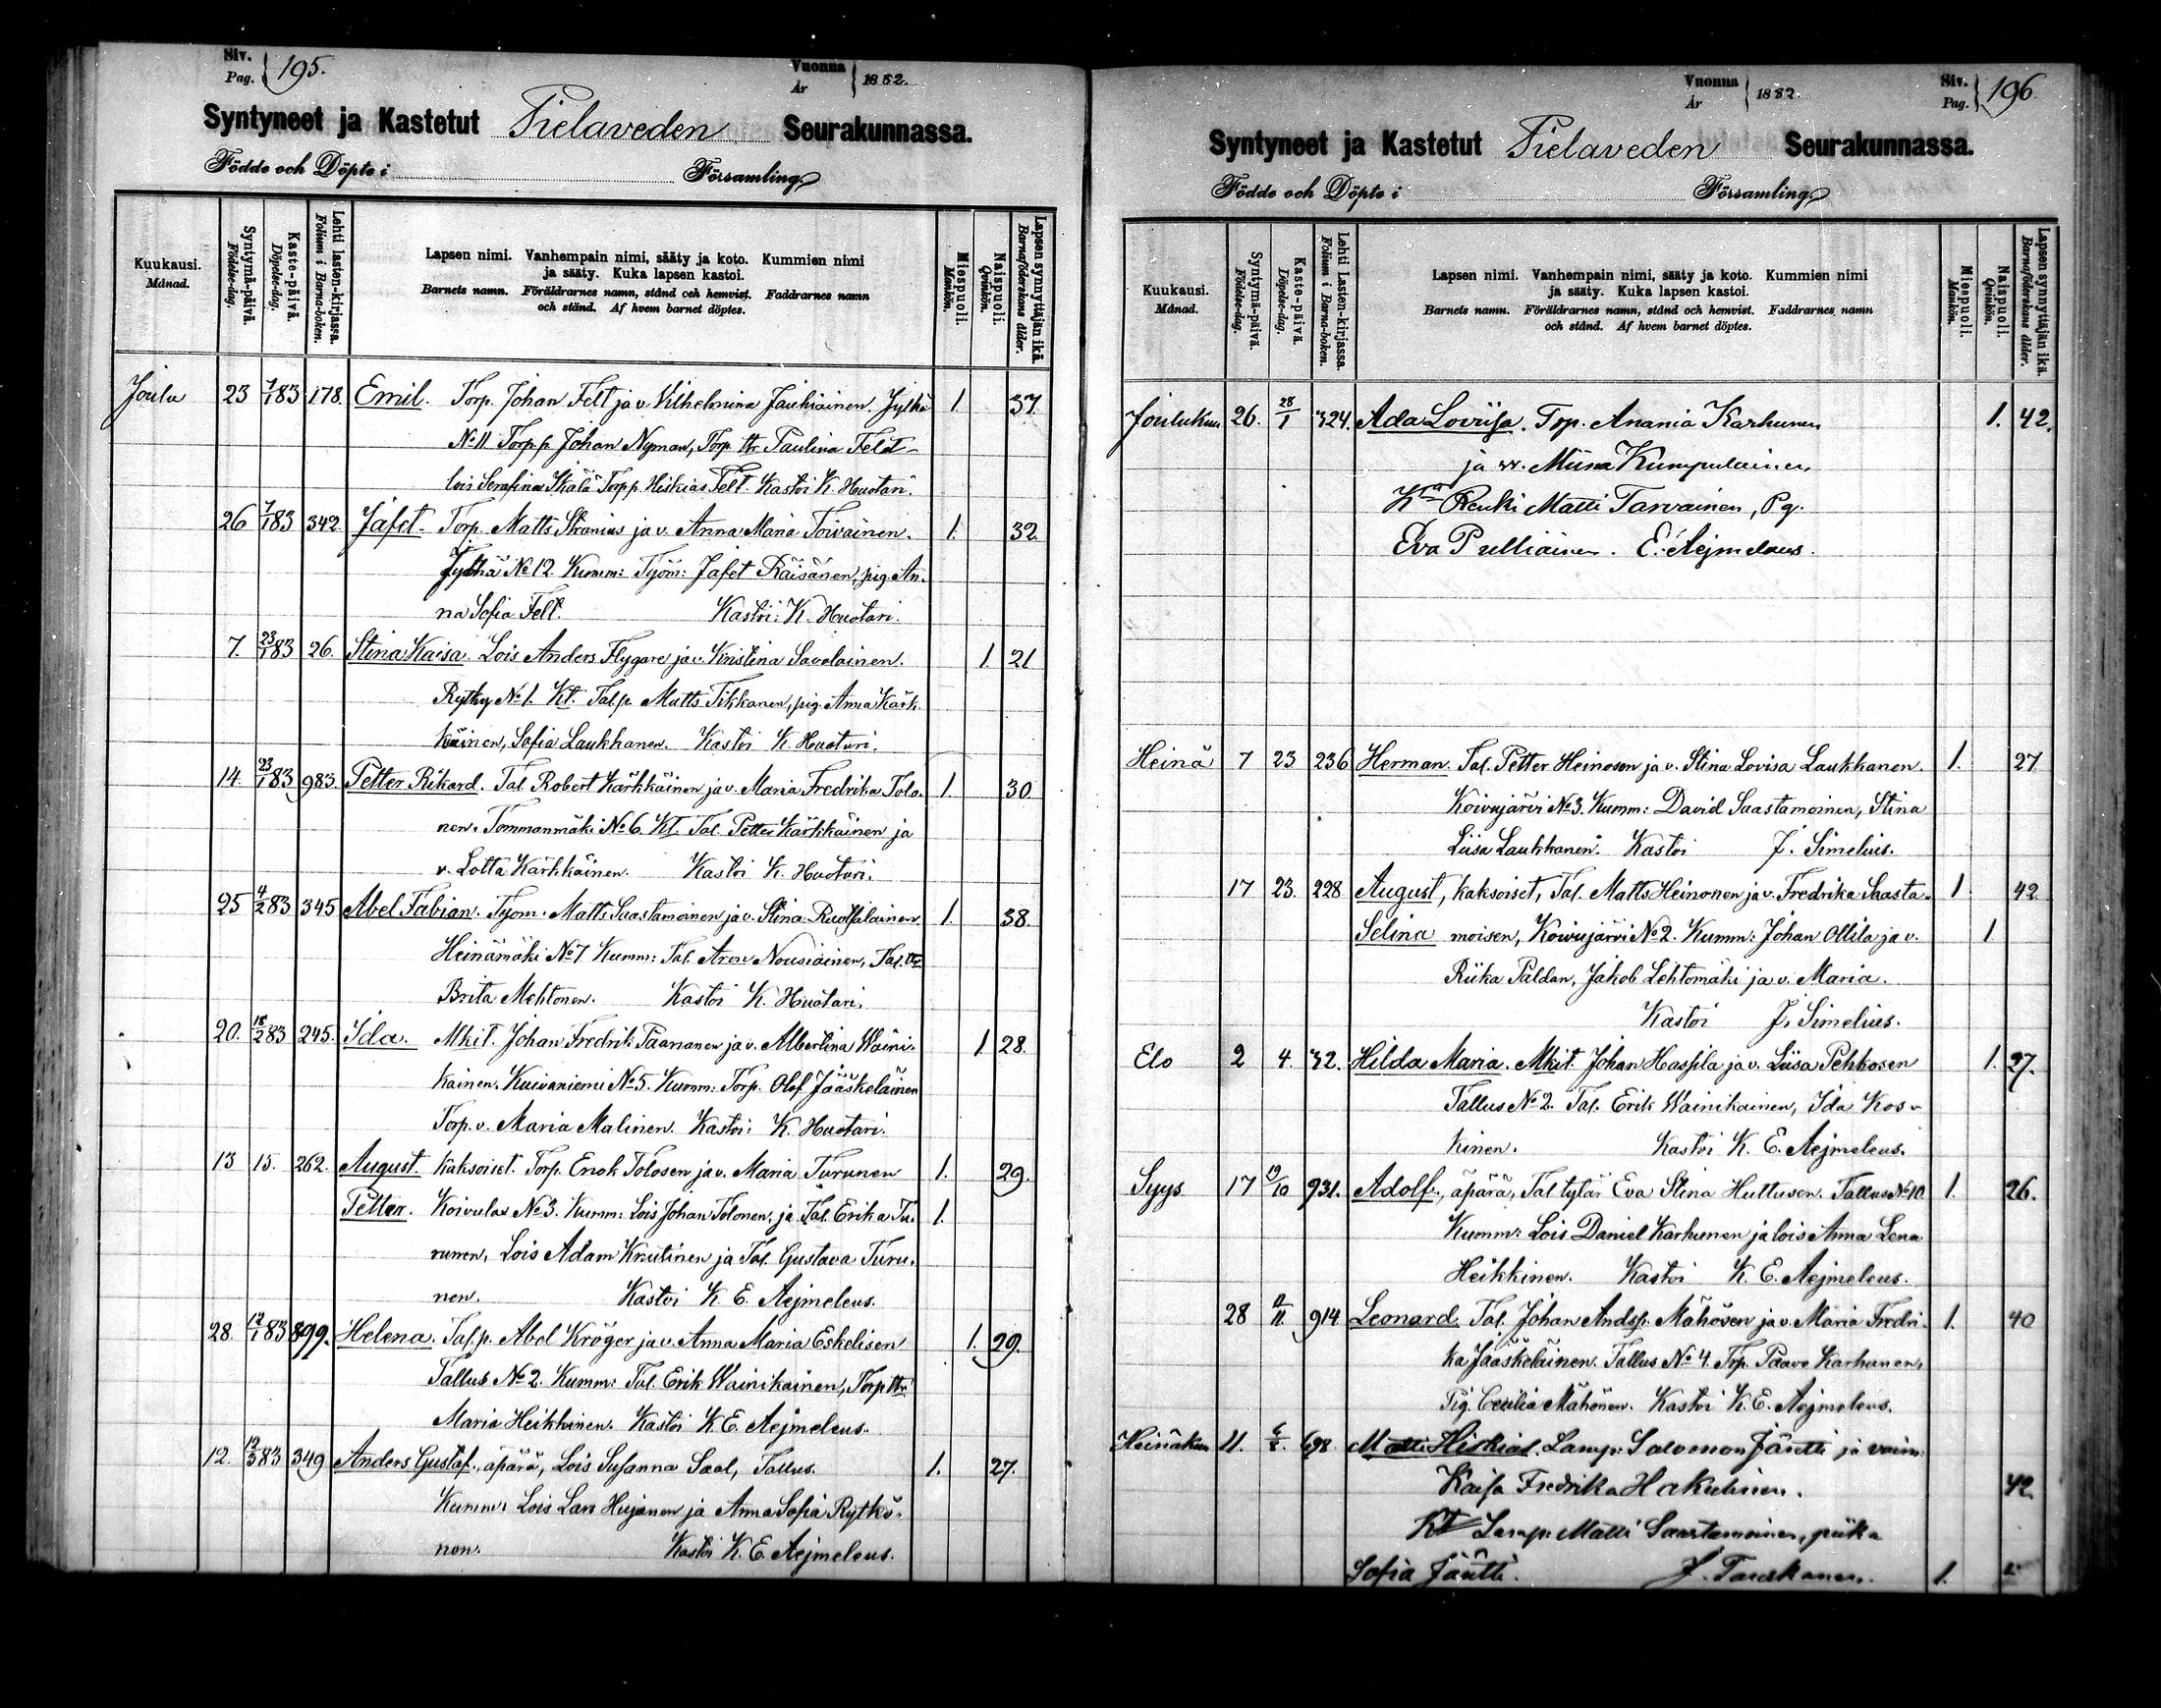 Siv. Pag. 195. Vuonna År 1882.
Syntyneet ja Kastetut Pielaveden Seurakunnassa.
Födde och Döpte i Församling.
Kuukausi. Månad.
Syntymä-päivä. Födelse-dag.
Kaste-päivä. Döpelse-dag.
Lehti lasten-kirjassa. Folium i Barna-boken.
Lapsen nimi. Vanhempain nimi, sääty ja koto. Kummien nimi
ja sääty. Kuka lapsen kastoi.
Barnets namn. Föräldrarnes namn, stånd och hemvist. Faddrarnes namn
och stånd. Af hvem barnet döptes.
Miespuoli. Mankön.
Naispuoli. Qvinkön.
Lapsen synnyttäjän ikä. Barnaföderskans ålder.
Joulu 23 7/1 83 178. Emil. Torp. Johan Felt ja v. Vilhelmina Jauhiainen. Jylhä 1. 37.
No 11 Torp.p. Johan Nyman, Torp. ttr Paulina Feldt
lois Serafina Ikälä Torp.p. Hiskias Felt. Kastoi K. Huotari.
26 7/1 83 342. Jafet. Torp. Matts Stranius ja v. Anna Maria Toivainen. 1. 32.
Jylhä No 12. Kumm: Työm: Jafet Räisänen, pig. An-
na Sofia Felt. Kastoi: K. Huotari.
7. 23/1 83 26. Stina Kaisa. Lois Anders Flygare ja v. Kristina Savolainen. 1. 21
Rytky No 1. Kt. Tal.p. Matts Tikkanen, pig. Anna Kärk-
käinen, Sofia Laukkanen. Kastoi K. Huotari.
14. 23/1 83 983. Petter Rikard. Tal. Robert Kärkkäinen ja v. Maria Fredrika Tolo- 1. 30.
nen. Tommanmäki No 6. Kt. Tal. Petter Kärkkäinen ja
v. Lotta Kärkkäinen. Kastoi K. Huotari.
25 4/2 83 345 Abel Fabian. Työm. Matts Saastamoinen ja v. Stina Ruotsalainen. 1. 38.
Heinämäki No 7 Kumm: Tal. Aron Nousiainen, Tal. ttr
Brita Mehtonen. Kastoi K. Huotari.
20. 18/2 83 245. Ida. Mkit. Johan Fredrik Paananen ja v. Albertina Waini- 1. 28.
kainen. Kuivaniemi No 5. Kumm: Torp. Olof Jääskeläinen
Torp. v. Maria Malinen. Kastoi: K. Huotari.
13 15. 262. August kaksoiset. Torp. Enok Tolosen ja v. Maria Turunen 1. 29.
Petter. Koivula No 3. Kumm: Lois Johan Tolonen, ja Tal. Erika Tu- 1.
runen, Lois Adam Knutinen ja Tal. Gustava Turu-
nen. Kastoi K. E. Aejmeleus.
28. 12/1 83 899. Helena. Tal.p. Abel Kröger ja v. Anna Maria Eskelisen 1. 29.
Tallus No 2. Kumm: Tal. Erik Wainikainen, Torp ttr
Maria Heikkinen. Kastoi K. E. Aejmeleus.
12. 12/3 83 349 Anders Gustaf., äpärä, Lois Susanna Saal, Tallus. 1. 27.
Kumm: Lois Lars Hujanen ja Anna Sofia Rytkö-
nen. Kastoi K. E. Aejmeleus.
Vuonna År 1882. Siv. Pag. 196
Syntyneet ja Kastetut Pielaveden Seurakunnassa.
Födde och Döpte i Församling.
Kuukausi. Månad.
Syntymä-päivä. Födelse-dag.
Kaste-päivä. Döpelse-dag.
Lehti Lasten-kirjassa. Folium i Barna-boken.
Lapsen nimi. Vanhempain nimi, sääty ja koto. Kummien nimi
ja sääty. Kuka lapsen kastoi.
Barnets namn. Föräldrarnes namn, stånd och hemvist. Faddrarnes namn
och stånd. Af hvem barnet döptes.
Miespuoli. Mankön.
Naispuoli. Qvinkön.
Lapsen synnyttäjän ikä. Barnaföderskans ålder.
Jouluku 26. 28/1 324. Ada Loviisa. Trp. Anania Karhunen 1. 42.
ja vr. Miina Kumpulainen
Kt Renki Matti Tarvainen, Pg.
Eva Pulliainen. E. Aejmelaus.
Heinä 7 23 236 Herman. Tal. Petter Heinosen ja v. Stina Lovisa Laukkanen. 1. 27
Koivujärvi No 3. Kumm: David Saastamoinen, Stina
Liisa Laukkanen. Kastoi J. Simelius.
17 23. 228 August, kaksoiset, Tal. Matts Heinonen ja v. Fredrika Saasta- 1. 42
Selina moisen, Koivujärvi No 2. Kumm: Johan Ollila ja v. 1
Riika Paldan, Jakob Lehtomäki ja v. Maria.
Kastoi J. Simelius.
Elo 2 4. 32. Hilda Maria. Mkit. Johan Haspila ja v. Liisa Pehkosen 1. 27.
Tallus No 2. Tal. Erik Wainikainen, Ida Kos-
kinen. Kastoi K. E. Aejmeleus.
Syys 17 19/10 931. Adolf., äpärä, Tal tytär Eva Stina Huttusen. Tallus No 10 1. 26.
Kumm: Lois Daniel Karhunen ja lois Anna Lena
Heikkinen. Kastoi K. E. Aejmeleus.
28 914 Leonard Tal. Johan Andsp. Mähösen ja v. Maria Fredri- 1. 40
ka Jääskeläinen. Tallus No 4. Trp. Paavo Karhanen,
Pig. Cecilia Mähönen. Kastoi K. E. Aejmeleus.
Heinäkuu 11. 698 Matti Hiskias. Lamp. Salomon Jäntti ja vaim:
Kaisa Fredrika Hakulinen. 42
Kt Lamp. Matti Saastamoinen, piika
Sofia Jäntti. J. Taskanen. 1.